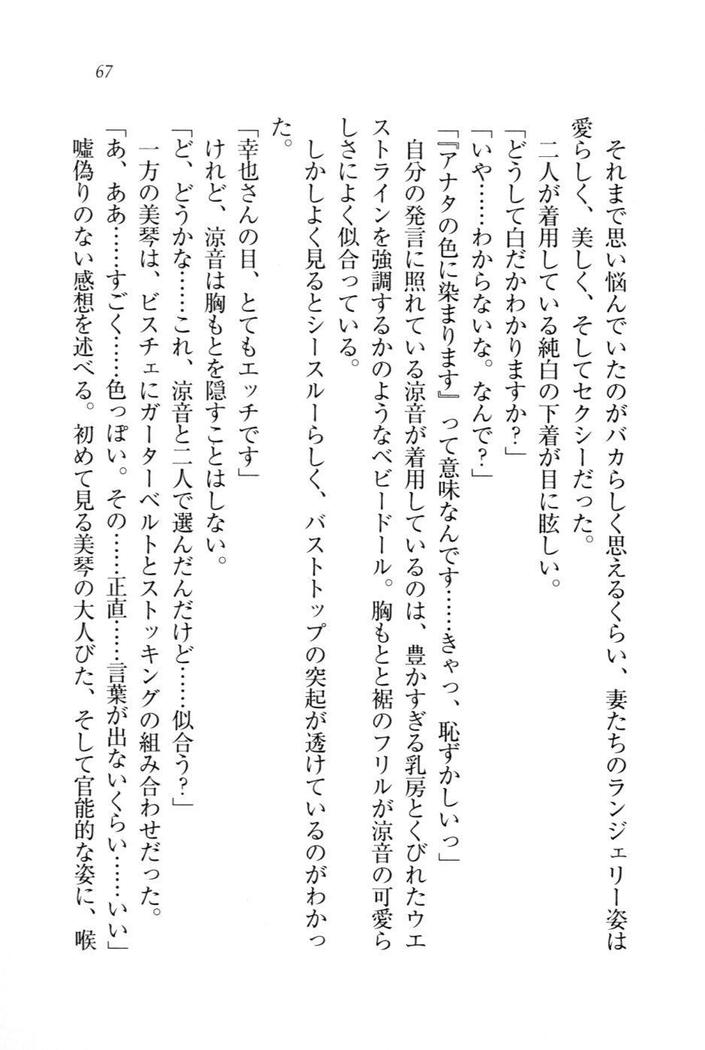 67
それまで思い悩んでいたのがバカらしく思えるくらい、妻たちのランジェリー姿は
愛らしく、美しく、そしてセクシーだった。
二人が着用している純白の下着が目に眩しい。
「どうして白だかわかりますか？」
「いや……わからないな。なんで？」
「『アナタの色に染まります』って意味なんです……きゃっ、恥ずかしいっ」
自分の発言に照れている涼音が着用しているのは、豊かすぎる乳房とくびれたウエ
ストラインを強調するかのようなベビードール。胸もとと裾のフリルが涼音の可愛ら
しさによく似合っている。
しかしよく見るとシースルーらしく、バストトップの突起が透けているのがわかっ
た。
「幸也さんの目、とてもエッチです」
けれど、涼音は胸もとを隠すことはしない。
「ど、どうかな……これ、涼音と二人で選んだんだけど……似合う？」
一方の美琴は、ビスチェにガーターベルトとストッキングの組み合わせだった。
「あ、ああ……すごく……色っぽい。その……正直……言葉が出ないくらい……いい」
嘘偽りのない感想を述べる。初めて見る美琴の大人びた、そして官能的な姿に、喉